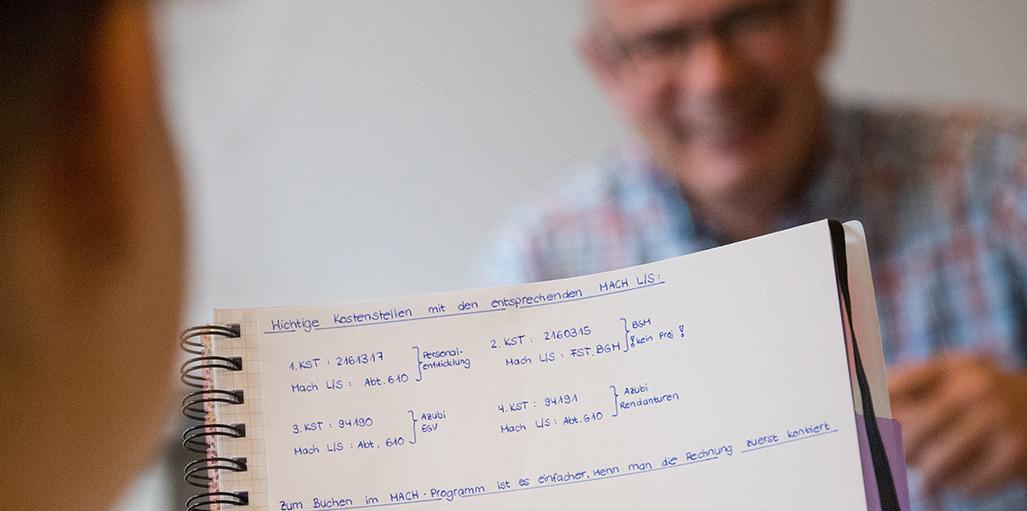 Wichtige Kostenstellen mit den entsprechenden MACH L/S:
1. KST : 2161317 } Personal-
entwicklung
Mach L/S : Abt. 610
2. KST : 2160315 } BGM
! kein Proj !
Mach L/S : FST. BGM
3. KST : 94190 } Azubi
EGV
Mach L/S : Abt. 610
4. KST : 94191 } Azubi
Rendanturen
Mach L/S : Abt. 610
Zum Buchen im MACH-Programm ist es einfacher, wenn man die Rechnung zuerst kontiert